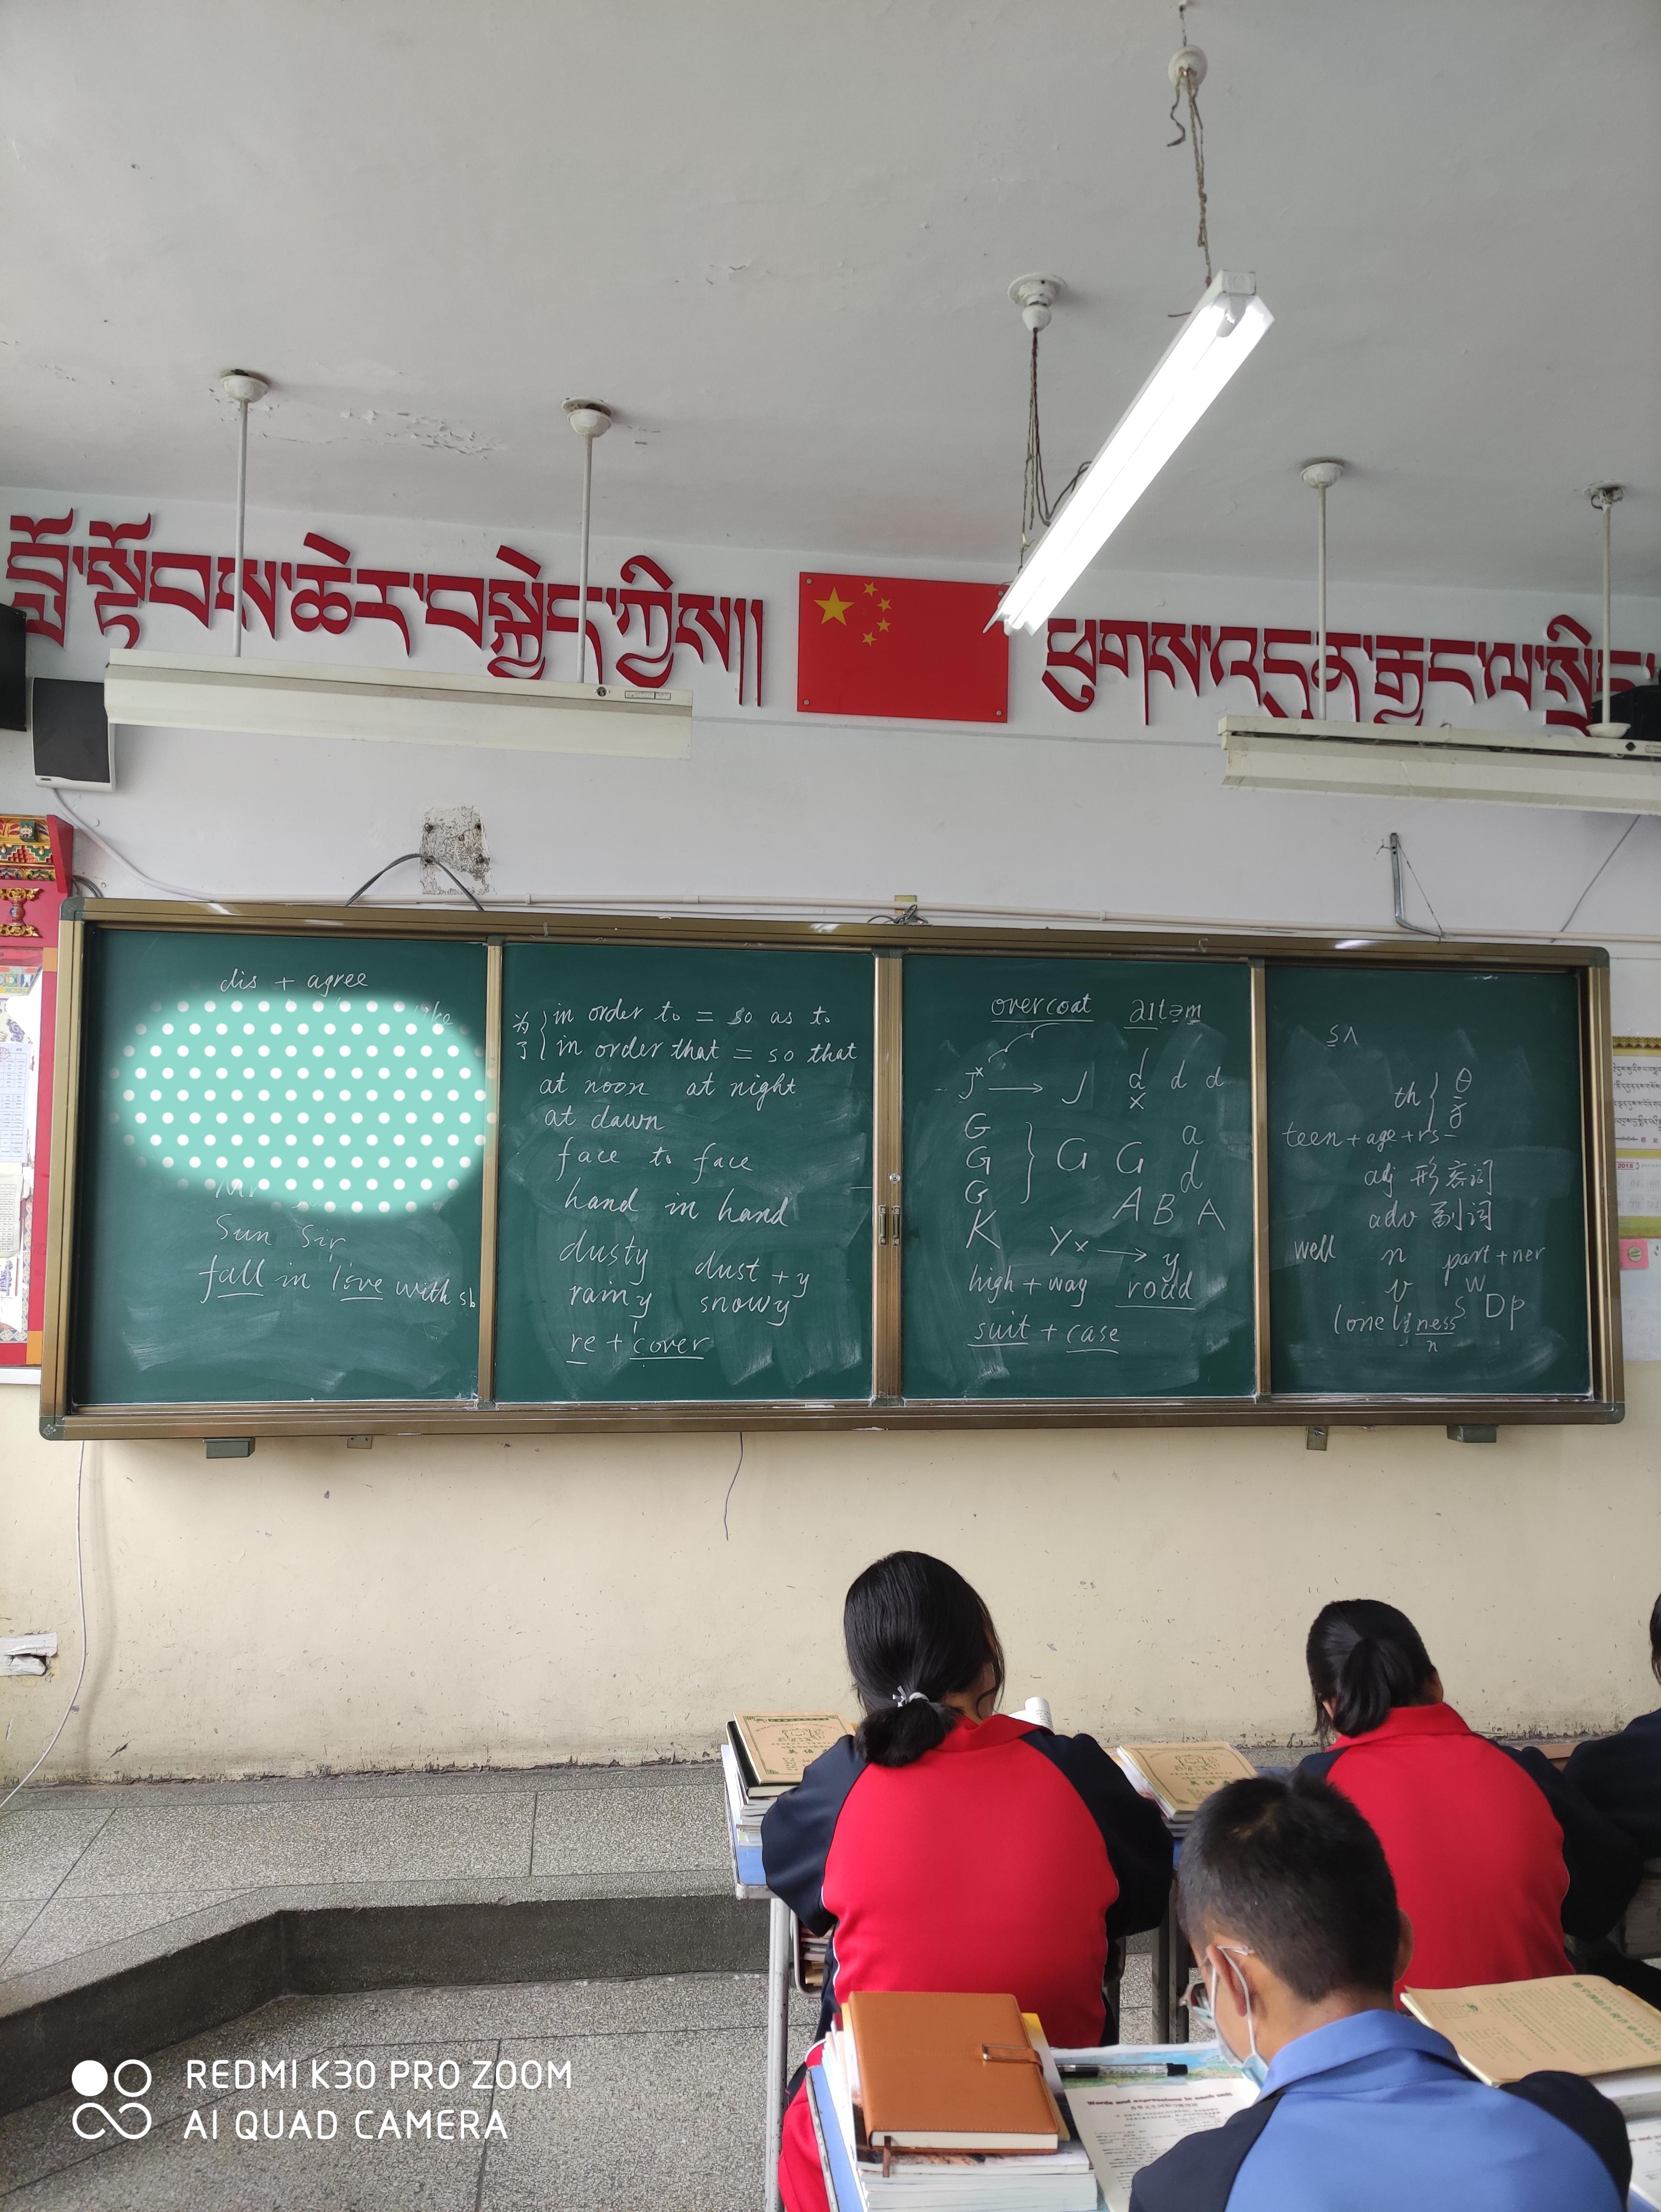 བློ་སྟོབས་ཆེར་བསྐྱེད་ཀྱིས།།
ཕུགས་འདུན་རྒྱང་ལ་སྲིང
dis + agree
Sun Sir
fall in love with sb
为了 { in order to = so as to
in order that = so that
at noon at night
at dawn
face to face
hand in hand
dusty dust + y
rainy snowy
re + cover
overcoat aɪtəm
J x → J d x d d
G
G } G G a d
G
A B A
K Yx → y
high + way road
suit + case
sʌ
th { θ ð
teen + age + rs
adj 形容词
adv 副词
well n part + ner
v w
s Dp
loneliness
n
英语
英语
2018
Words and expressions in each unit
REDMI K30 PRO ZOOM
AI QUAD CAMERA